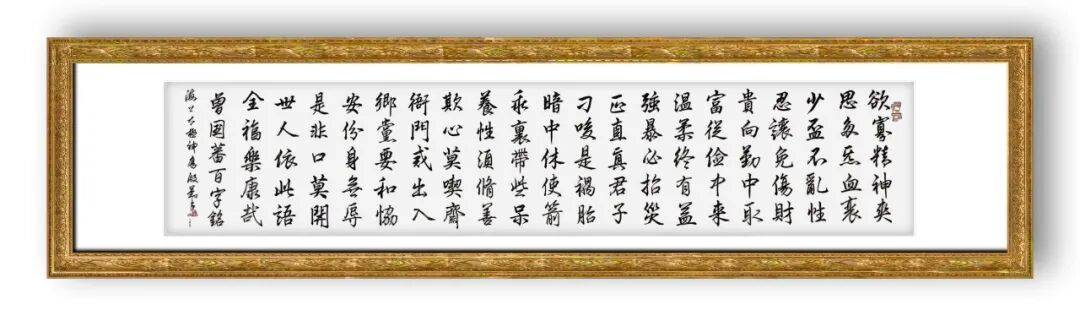 欲寡精神爽
思多炁血衰
少盃不亂性
忍讓免傷財
貴向勤中取
富從儉中來
温柔終有益
強暴必招災
正直真君子
刁唆是禍胎
暗中休使箭
乖裏帶些呆
養性須脩善
欺心莫喫齋
衙門戒出入
鄉黨要和協
安份身無辱
是非口莫開
世人依此語
全福樂康哉
曾國蕃百字銘